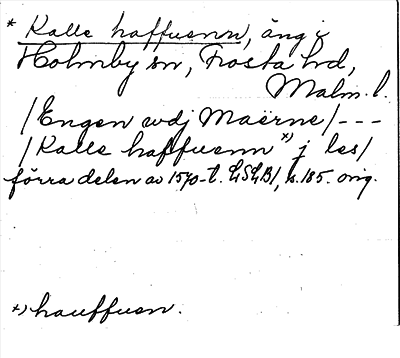 * Kalle haffuenn, äng i
Holmby sn, Frosta hd,
Malm. l.
/Engen wdj Maërne/---
/Kalle haffuenn *) j les/
förra delen av 1570-t. LSLB1, s. 185. orig.
*) hauffuen.